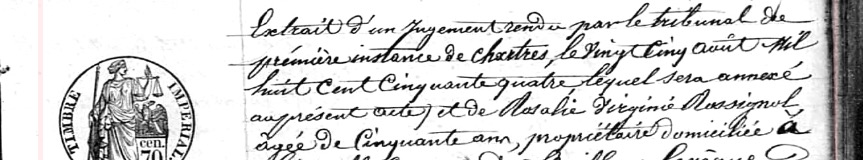 Extrait d'un Jugement rendu par le tribunal de
prémière instance de chartres, le vingt Cinq août Mil
huit Cent Cinquante quatre, lequel sera annexé
au présent acte) et de Rosalie Virginie Rossignol
âgée de Cinquante ans, propriétaire domiciliée à
TIMBRE IMPERIAL
cen.
70